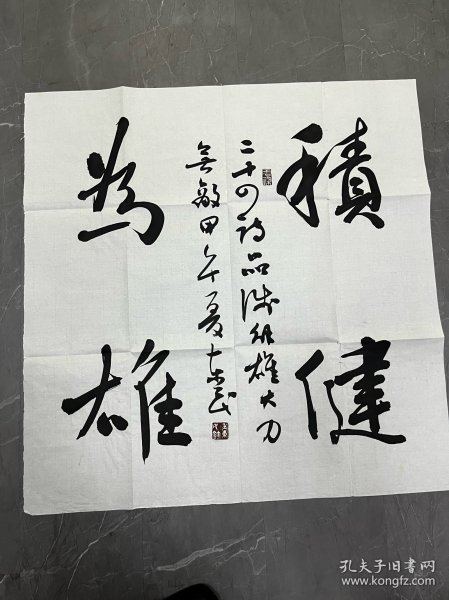 積健
為雄
二十四诗品雄大力
無敵甲午夏
孔夫子旧书网
www.kongfz.com